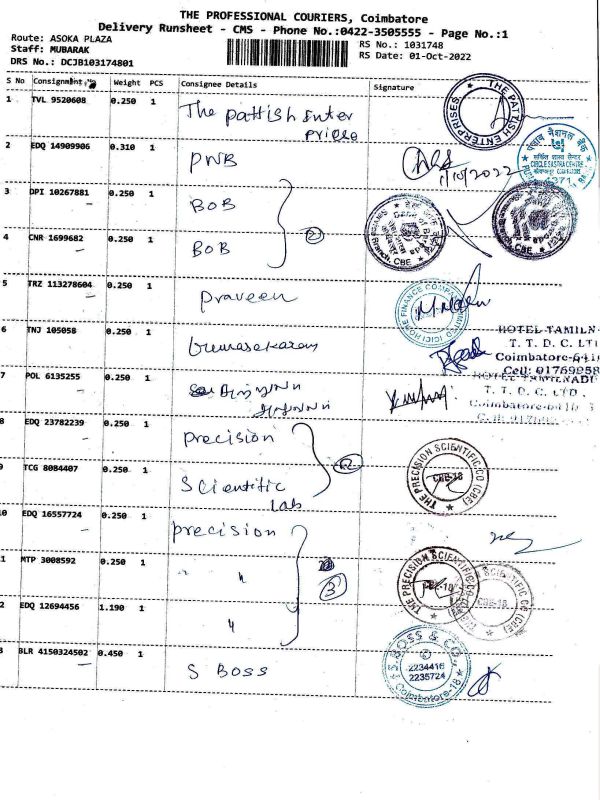 THE PROFESSIONAL COURIERS, Coimbatore
Delivery Runsheet - CMS - Phone No.:0422-3505555 - Page No.:1
Route: ASOKA PLAZA
Staff: MUBARAK
DRS No.: DCJB103174801
RS No.: 1031748
RS Date: 01-Oct-2022
S No Consignment Weight PCS Consignee Details Signature
1 TVL 9520608 0.250 1 The pattish Enter
prises
THE PATTISH ENTERPRISES
2 EDQ 14909906 0.310 1 PNB
1/10/2022
3 DPI 10267881 0.250 1 BOB
4 CNR 1699682 0.250 1 BOB
②
5 TRZ 113278604 0.250 1 praveen
6 TNJ 105058 0.250 1
HOTEL TAMILN
T. T. D. C. LTI
Coimbatore-641
7 POL 6135255 0.250 1
HOTEL TAMILNADU
T. T. D. C. LTD.
8 EDQ 23782239 0.250 1 precision
9 TCG 8084407 0.250 1 Scientific
Lab
THE PRECISION SCIENTIFIC CO (CBE)
CBE-18
0 EDQ 16557724 0.250 1 precision
1 MTP 3008592 0.250 1 " "
③
2 EDQ 12694456 1.190 1 "
THE PRECISION SCIENTIFIC CO
CBE-18
3 BLR 4150324502 0.450 1 S BOSS
S BOSS & CO.
2234416
2235724
Coimbatore-18